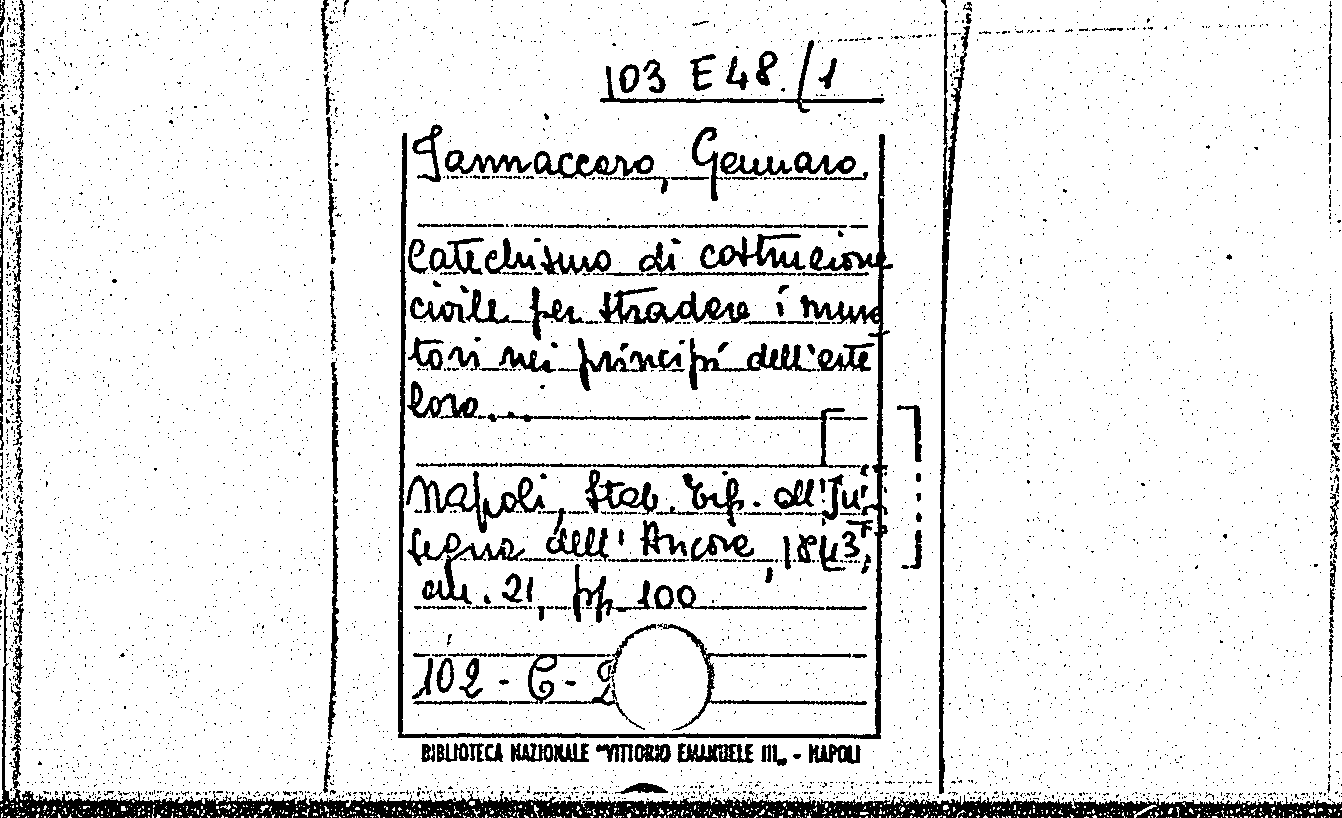 103 E 48./1
Jannaccoro, Gennaro.
Catechismo di costruzione
civile per stradare i mura
tori nei principi dell'arte
loro...
Napoli, Stab. Tip. all'In
segna dell'Ancora, 1843,
cm. 21, pp. 100
102 - C -
BIBLIOTECA NAZIONALE "VITTORIO EMANUELE III„ - NAPOLI